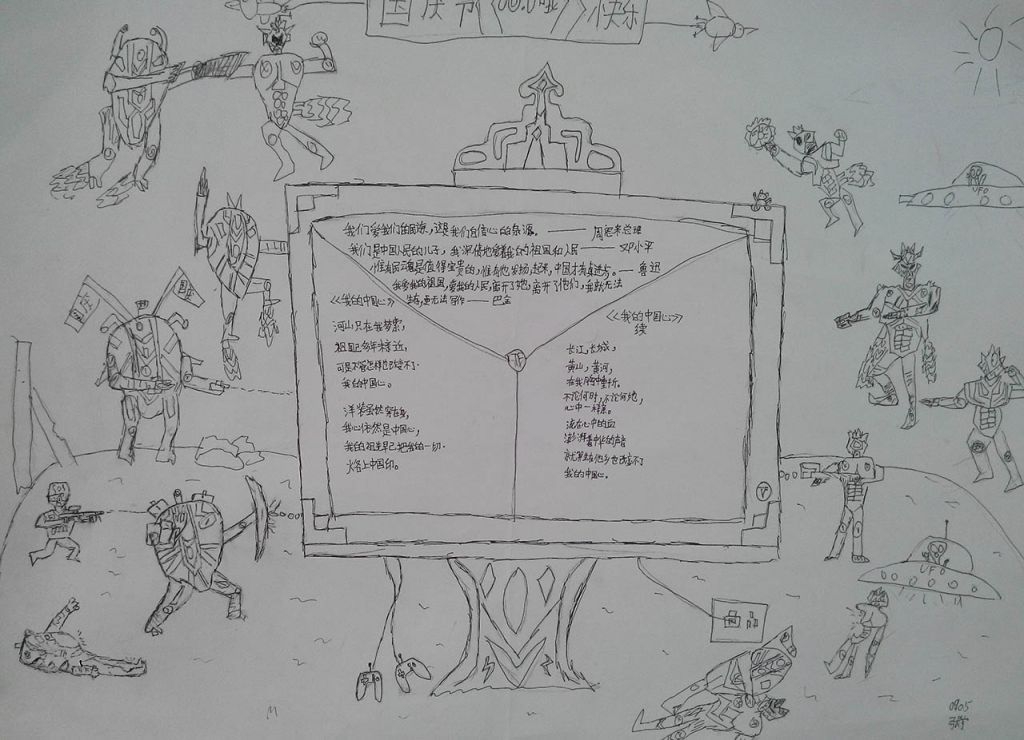 国庆节《00.0啦》快乐
我们爱我们的民族,这是我们自信心的泉源。——周恩来总理
我们是中国人民的儿子,我深情地爱着我的祖国和人民——邓小平
惟有民魂是值得宝贵的,惟有他发扬起来,中国才有真进步。——鲁迅
我爱我的祖国,爱我的人民,离开了她,离开了他们,我就无法
生存,更无法写作——巴金
《我的中国心》
河山只在我梦萦,
祖国已多年未亲近,
可是不管怎样也改变不了
我的中国心。
洋装虽然穿在身,
我心依然是中国心,
我的祖先早已把我的一切
火烙上中国印。
《我的中国心》
续
长江,长城,
黄山,黄河,
在我胸中重千斤。
不论何时,不论何地,
心中一样亲。
流在心中的血
澎湃着中华的声音
就算生在他乡也改变不了
我的中国心。
国庆
UFO
UFO
0905